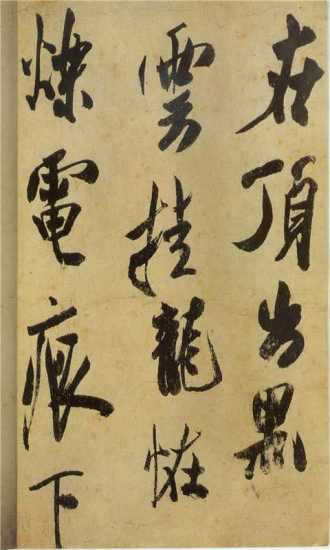 在頂出黑
雲挂龍怪
爍電痕下